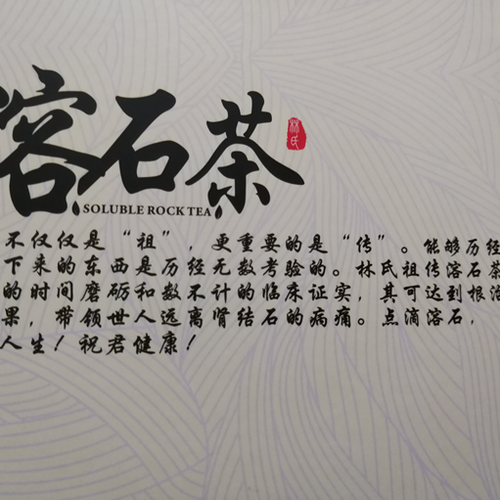 溶石茶
林氏
SOLUBLE ROCK TEA
不仅仅是“祖”，更重要的是“传”。能够历经
下来的东西是历经无数考验的。林氏祖传溶石茶
的时间磨砺和数不计的临床证实，其可达到根治
果，带领世人远离肾结石的病痛。点滴溶石，
人生！祝君健康！